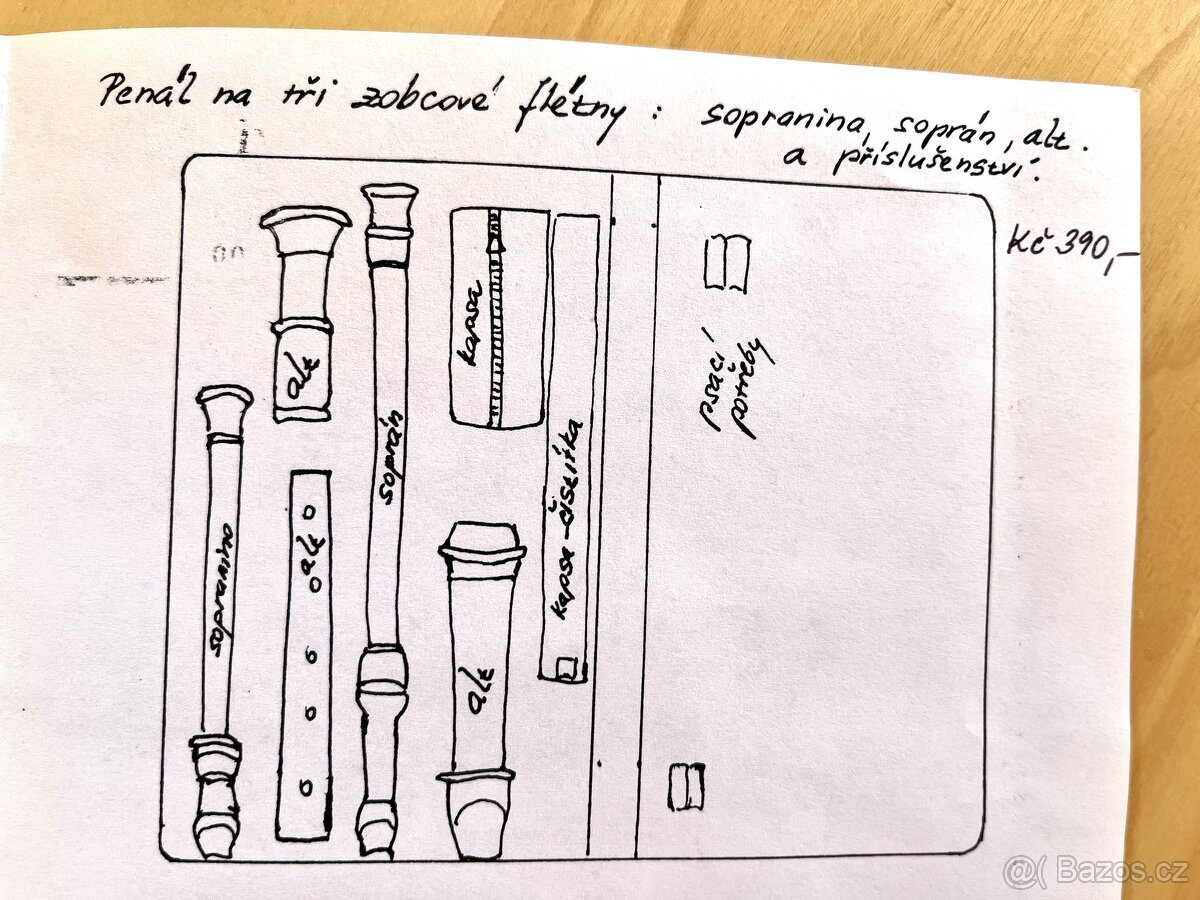 Penál na tři zobcové flétny : sopranina, soprán, alt.
a příslušenství.
Kč 390,-
alt
soprán
kapsa
kapsa - čistítka
psací
potřeby
sopranino
alt
alt
@( Bazos.cz